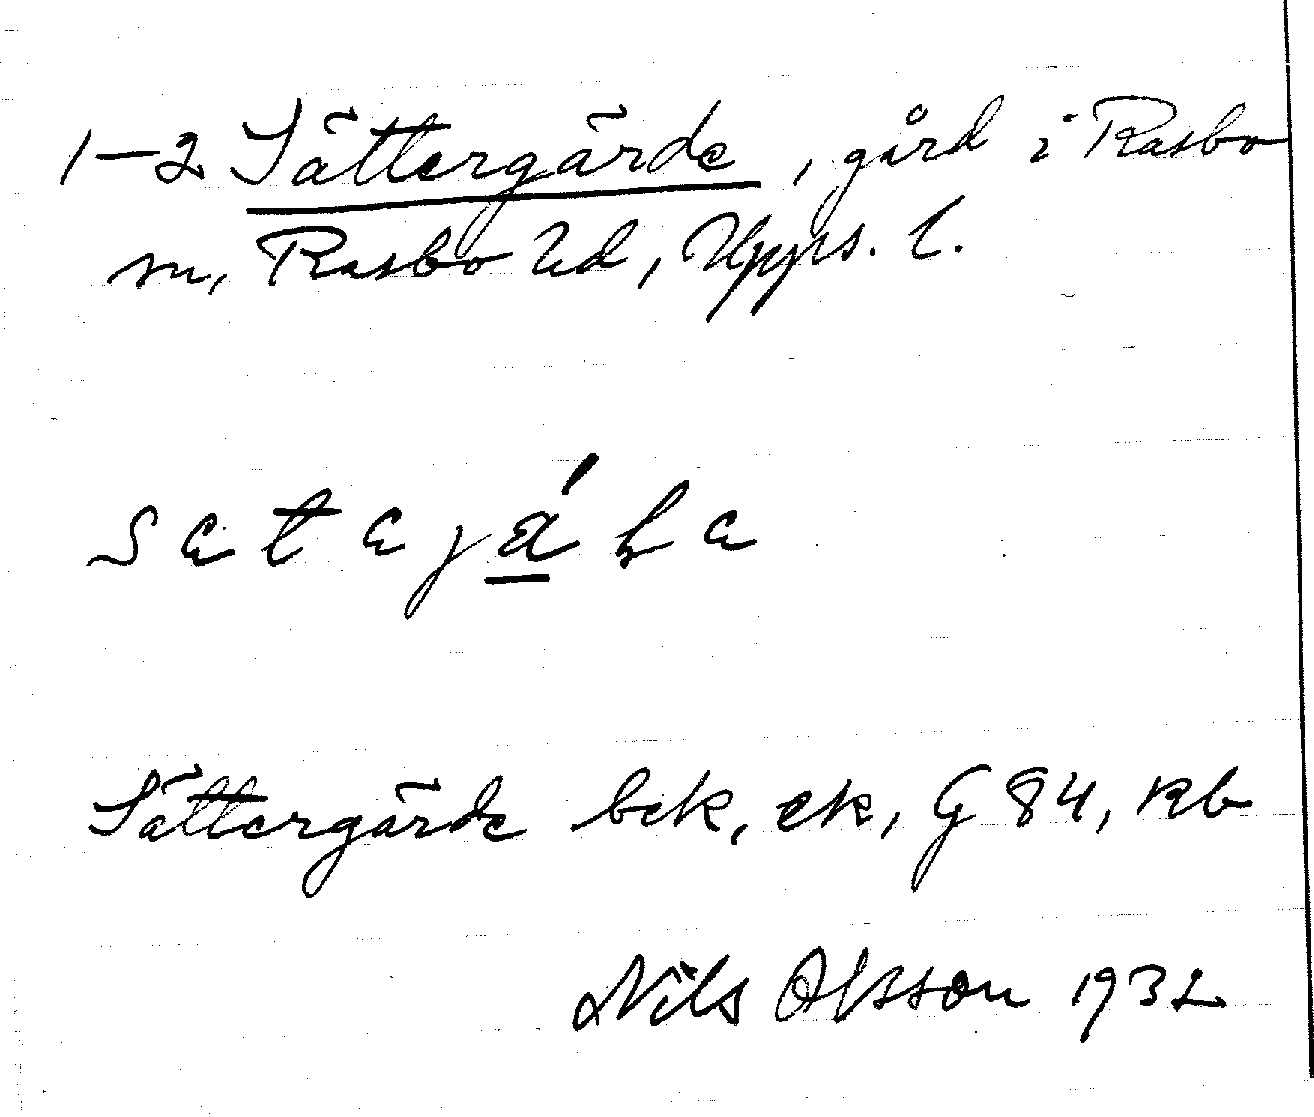 1-2 Sättergärde, gård i Rasbo
sn, Rasbo hd, Upps. l.
Sättergärde bek, ek, G 84, Kb
Nils Olsson 1932